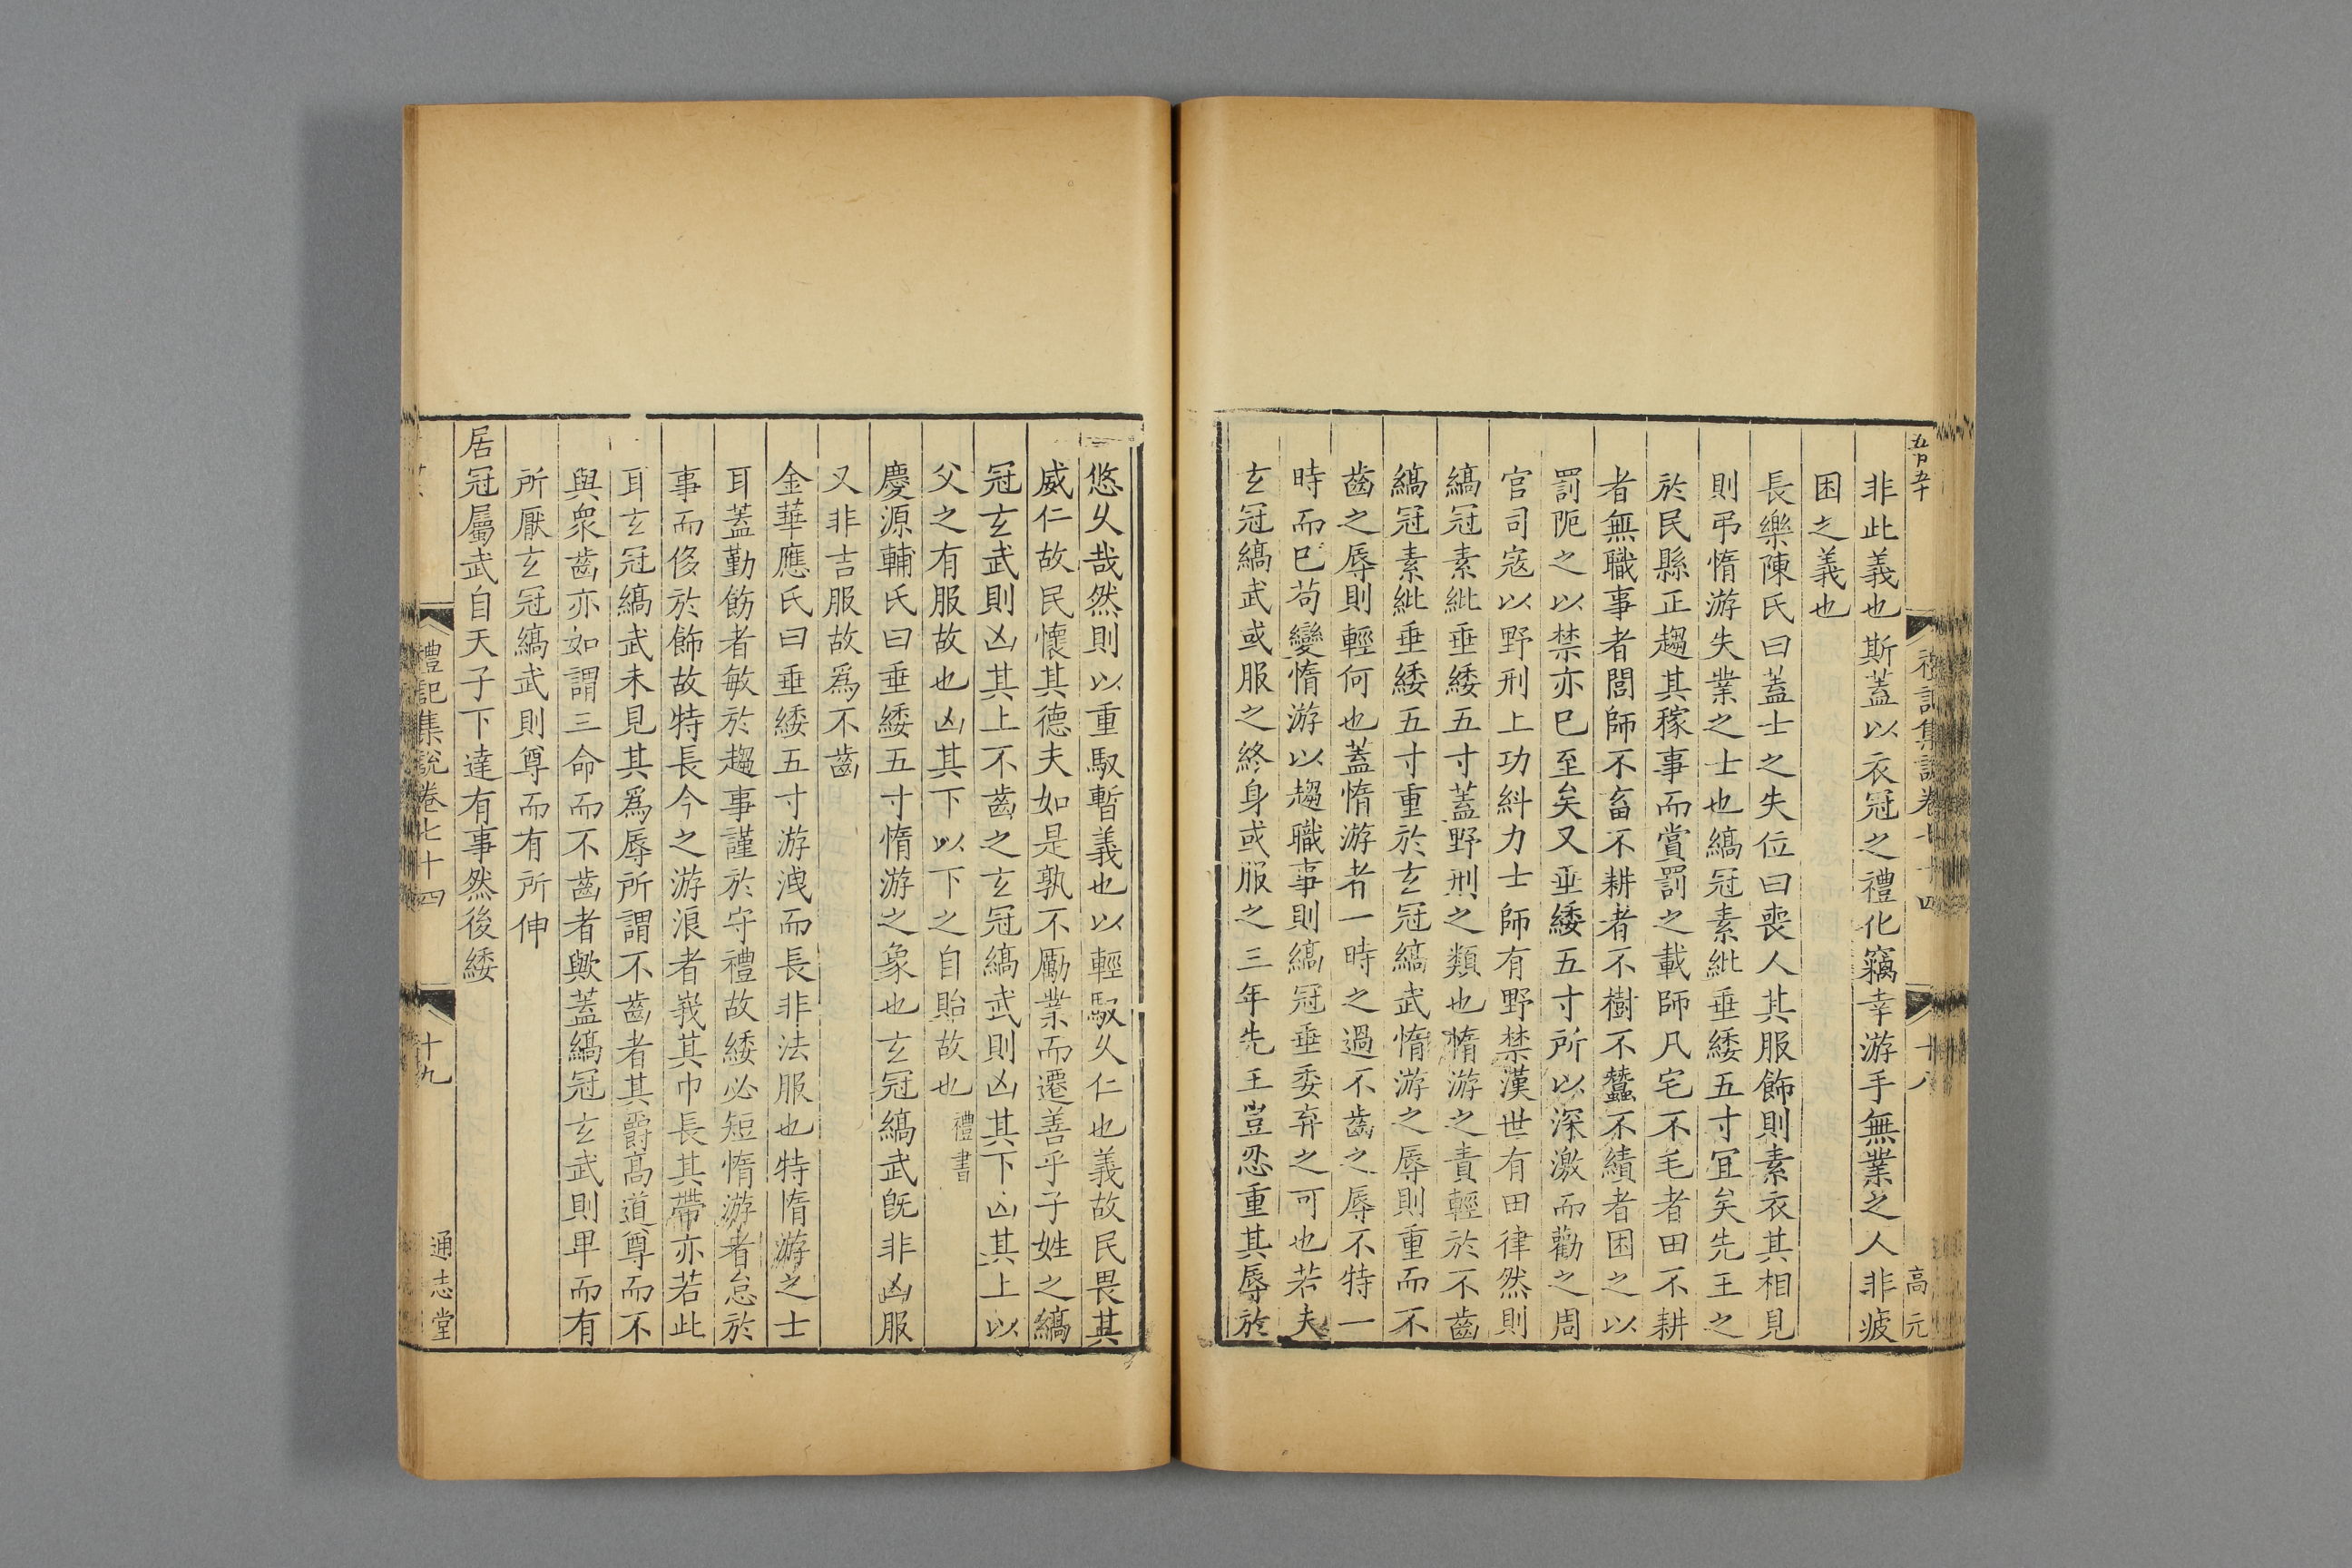 非此義也斯蓋以衣冠之禮化竊幸游手無業之人非疲
困之義也
長樂陳氏曰蓋士之失位曰喪人其服飾則素衣其相見
則弔惰游失業之士也縞冠素紕垂緌五寸宜矣先王之
於民縣正趨其稼事而賞罰之載師凡宅不毛者田不耕
者無職事者閭師不畜不耕者不樹不蠶不績者困之以
罰阨之以禁亦巳至矣又垂緌五寸所以深激而勸之周
官司寇以野刑上功糾力士師有野禁漢世有田律然則
縞冠素紕垂緌五寸蓋野刑之類也惰游之責輕於不齒
縞冠素紕垂緌五寸重於玄冠縞武惰游之辱則重而不
齒之辱則輕何也蓋惰游者一時之過不齒之辱不特一
時而巳苟變惰游以趨職事則縞冠垂委弃之可也若夫
玄冠縞武或服之終身或服之三年先王豈忍重其辱於
禮記集說卷七十四
十八
高元
悠久哉然則以重馭暫義也以輕馭久仁也義故民畏其
威仁故民懷其德夫如是孰不勵業而遷善乎子姓之縞
冠玄武則凶其上不齒之玄冠縞武則凶其下凶其上以
父之有服故也凶其下以下之自貽故也禮書
慶源輔氏曰垂緌五寸惰游之象也玄冠縞武旣非凶服
又非吉服故爲不齒
金華應氏曰垂緌五寸游洩而長非法服也特惰游之士
耳蓋勤飭者敏於趨事謹於守禮故緌必短惰游者怠於
事而侈於飾故特長今之游浪者峩其巾長其帶亦若此
耳玄冠縞武未見其爲辱所謂不齒者其爵高道尊而不
與衆齒亦如謂三命而不齒者歟蓋縞冠玄武則卑而有
所厭玄冠縞武則尊而有所伸
居冠屬武自天子下達有事然後緌
禮記集說卷七十四
十九
通志堂